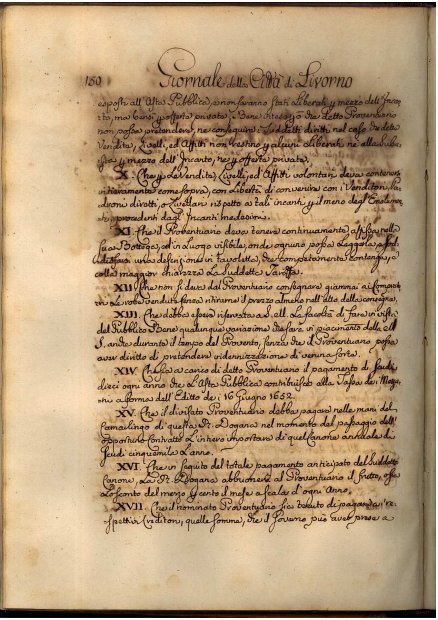 150 Giornale della Città di Livorno
esposti all'Asta Pubblica, e non saranno stati Liberati p mezzo dell'Incan
to, ma bensì p offerta privata; Bene inteso p che detto Proventuario
non possa pretendere, ne conseguire i suddetti diritti nel caso che dette
Vendite, Livelli, ed Affitti non restino p alcuni Liberati ne alla
p mezzo dell'Incanto, ne p offerta privata.
X. Che p le Vendite, Livelli, ed Affitti volontari deva contenersi
intieramente come sopra, con libertà di convenire con i Venditori, Pa
droni diretti, o Livellari rispetto a tali incanti, p il meno degl'
precedenti dagl'Incanti medesimi.
XI. Che il Proventuario deva tenere continuamente affissa nella
sua Bottega, ed in Luogo visibile, onde ognuno possa Leggerla
una in tavoletta, che contenga, e
colla maggior chiarezza La suddetta Tariffa.
XII. Che non si deva dal Proventuario consegnare giammai ai Comprato
ri Le robe vendute senza ritirarne il prezzo almeno nell'atto della consegna.
XIII. Che debba essere riservata a S. A. R. La facoltà di fare in vista
del Pubblico Bene qualunque variazione che fosse in piacimento della A.
S. anche durante il tempo del Provento, senza che il Proventuario possa
aver diritto di pretendere indennizzazione di veruna sorta.
XIV. Che sia a carico di detto Proventuario il pagamento di Scudi
dieci ogni anno che L'Asta Pubblica contribuisce alla Tassa dei
a forma dell'Editto de' 16 Giugno 1652.
XV. Che il divisato Proventuario debba pagare nelle mani del
Camarlingo di questa R. Dogana nel momento del passaggio dell'
opportuno Contratto L'intiero importare di quel Canone annuale di
Scudi cinquemila L'anno.
XVI. Che in seguito del totale pagamento anticipato del suddetto
Canone, La R. Dogana abbuonerà al Proventuario il frutto, o sia
Lo sconto del mezzo p cento il mese a scalar d'ogni Anno.
XVII. Che il nominato Proventuario sia tenuto di pagare a i re
spettivi Creditori, quelle somme, che il Governo può aver prese a